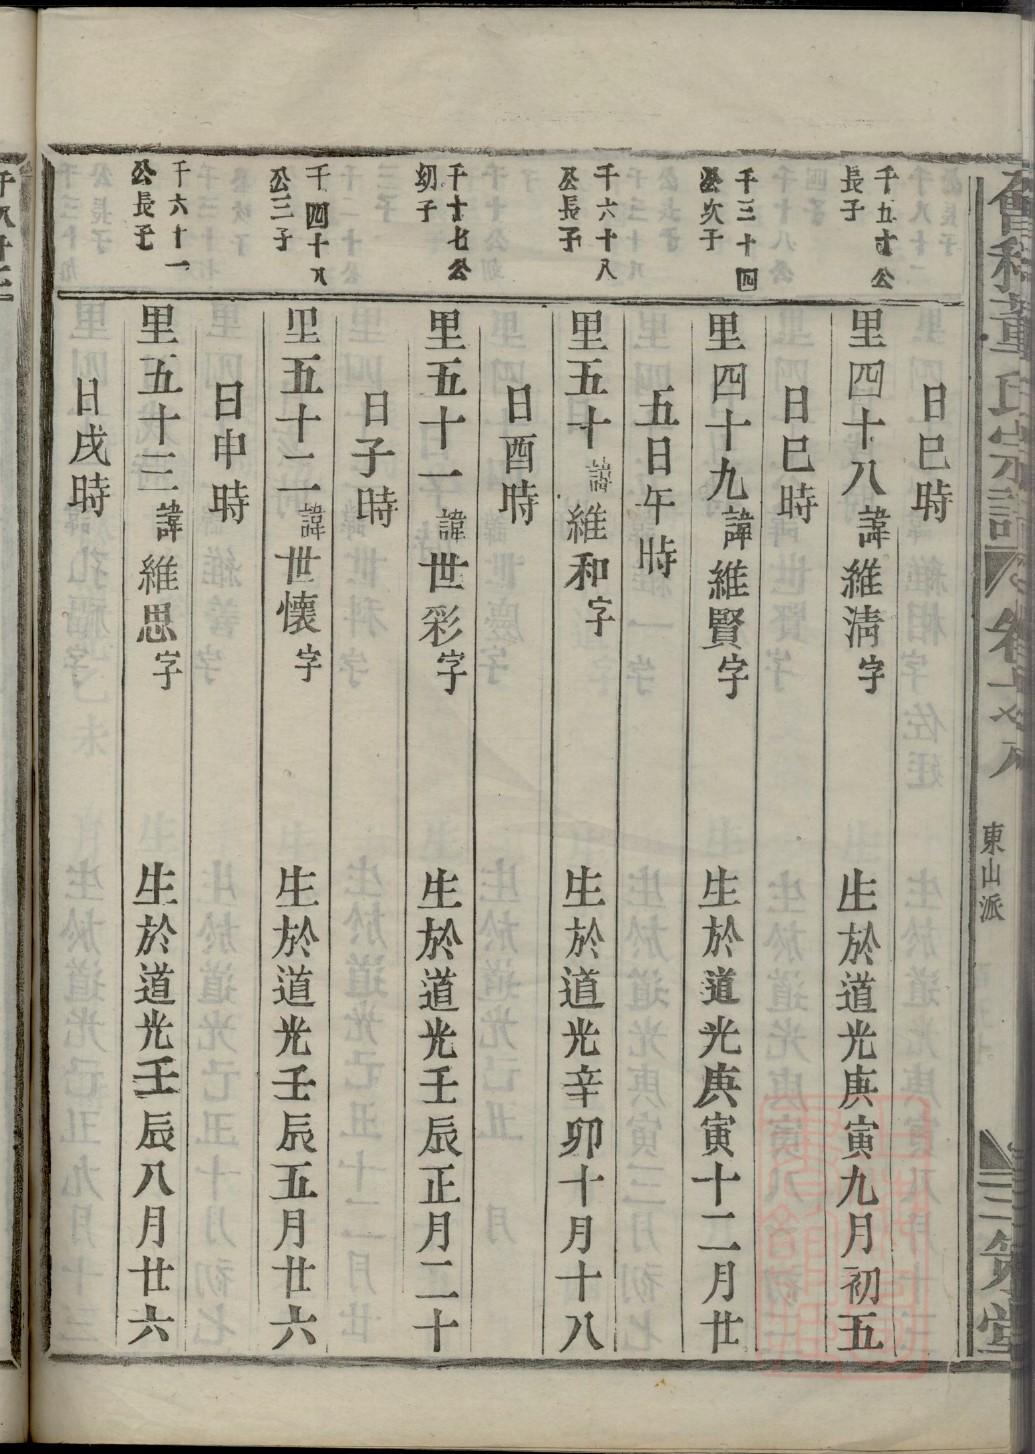 會稽董氏宗譜
東山派
三策堂
日巳時
千五十公
長子
里四十八諱維清字 生於道光庚寅九月初五
日巳時
千三十四
公次子
里四十九諱維賢字 生於道光庚寅十二月廿
五日午時
千六十八
公長子
里五十諱維和字 生於道光辛卯十月十八
日酉時
千十七公
幼子
里五十一諱世彩字 生於道光壬辰正月二十
日子時
千四十八
公三子
里五十二諱世懷字 生於道光壬辰五月廿六
日申時
千六十一
公長子
里五十三諱維思字 生於道光壬辰八月廿六
日戌時